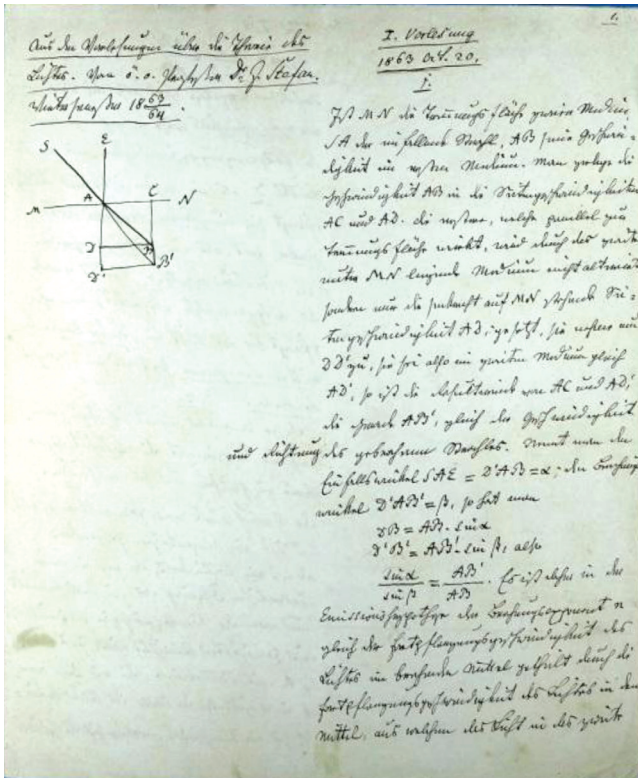 1.
Aus den Vorlesungen über die Theorie des
Lichtes. Vom k. o. Professor Dr. J. Stefan.
Wintersemester 1863/64.
S
E
A
C
M
N
D
B
D'
B'
I. Vorlesung
1863 Oct. 20.
1.
Ist MN die Trennungsfläche zweier Medien,
SA der einfallende Strahl, AB seine Geschwin-
digkeit im ersten Medium. Man zerlege die
Geschwindigkeit AB in die Seitengeschwindigkeiten
AC und AD. Die erstere, welche parallel zur
Trennungsfläche wirkt, wird durch das zweite
unter MN liegende Medium nicht alterirt
sondern nur die senkrecht auf MN stehende Sei-
tengeschwindigkeit AD; gesetzt, sie nehme um
DD' zu, sie sei also im zweiten Medium gleich
AD', so ist die Resultirende von AC und AD',
die Gerade AB', gleich der Geschwindigkeit
und Richtung des gebrochenen Strahles. Nennt man den
Einfallswinkel SAE = D'AB = α; den Brechungs
winkel D'AB' = β, so hat man
DB = AB. sin α
D'B' = AB'. sin β, also
sin α / sin β = AB' / AB. Es ist daher in der
Emissionshypothese der Brechungsexponent n
gleich der Fortpflanzungsgeschwindigkeit des
Lichtes im brechenden Mittel getheilt durch die
Fortpflanzungsgeschwindigkeit des Lichtes in dem
Mittel, aus welchem das Licht in das zweite